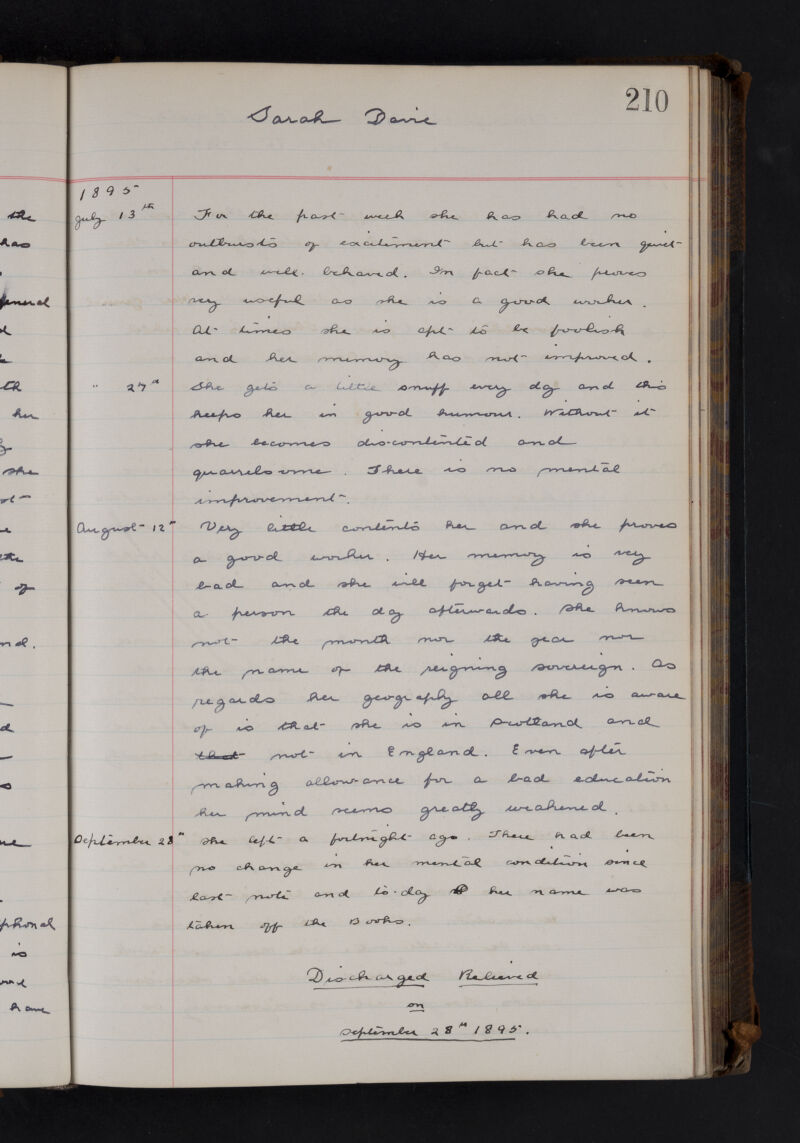 210
Sarah Davie
1895
July 13th For the past week she has had no
outbursts of excitement but has been quiet
and well behaved. In fact she proves
very useful as she is a good worker.
At times she is apt to be foolish
and her memory has not improved.
" 27th She gets a little snuff every day and this
keeps her in good humour. Without it
she becomes discontented and
quarrelsome. There is no mental
improvement.
August 12th Very little contents her and she proves
a good worker. Her memory is very
bad and she will forget having seen
a person the day afterwards. She knows
not the month nor the year nor
the name of the reigning sovereign. As
regards her geography all she is aware
of is that she is in Scotland and
that not in England. Even after
making allowance for a bad education
her mind seems greatly weakened.
September 28th She left a fortnight ago. There had been
no change in her mental condition since
last note and to-day her name was
taken off the Books.
Discharged Relieved
on
September 28th 1895.
the
has
general
d
th
her
she
the
of
nd.
d
is
have